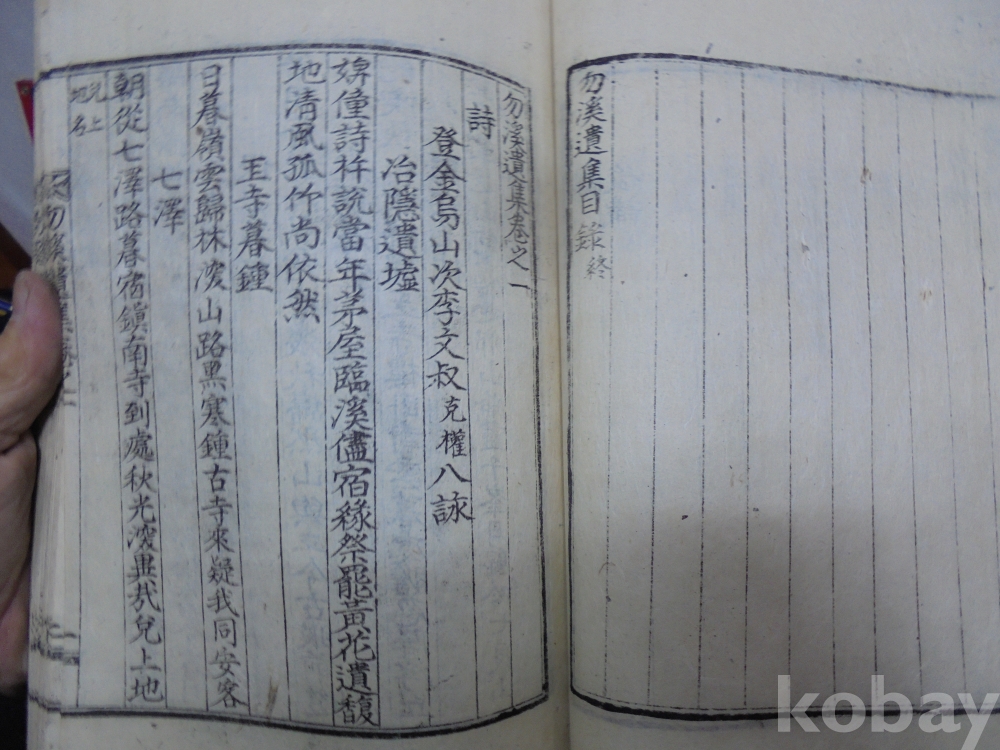 勿溪遺集目錄終
勿溪遺集卷之一
詩
登金烏山次李文叔克權八詠
冶隱遺墟
婢僮詩杵說當年茅屋臨溪儘宿緣祭罷黃花遺馥
地淸風孤竹尙依然
王寺暮鍾
日暮嶺雲歸林深山路黑寒鍾古寺來疑我同安客
七澤
朝從七澤路暮宿鎭南寺到處秋光深異哉兌上地
兌上地名
勿溪遺集卷之一
kobay